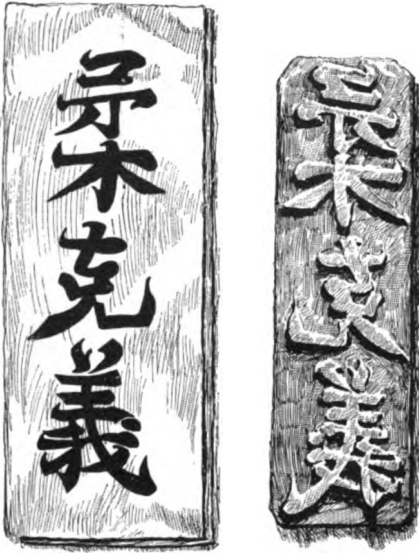 柔克義
柔克義